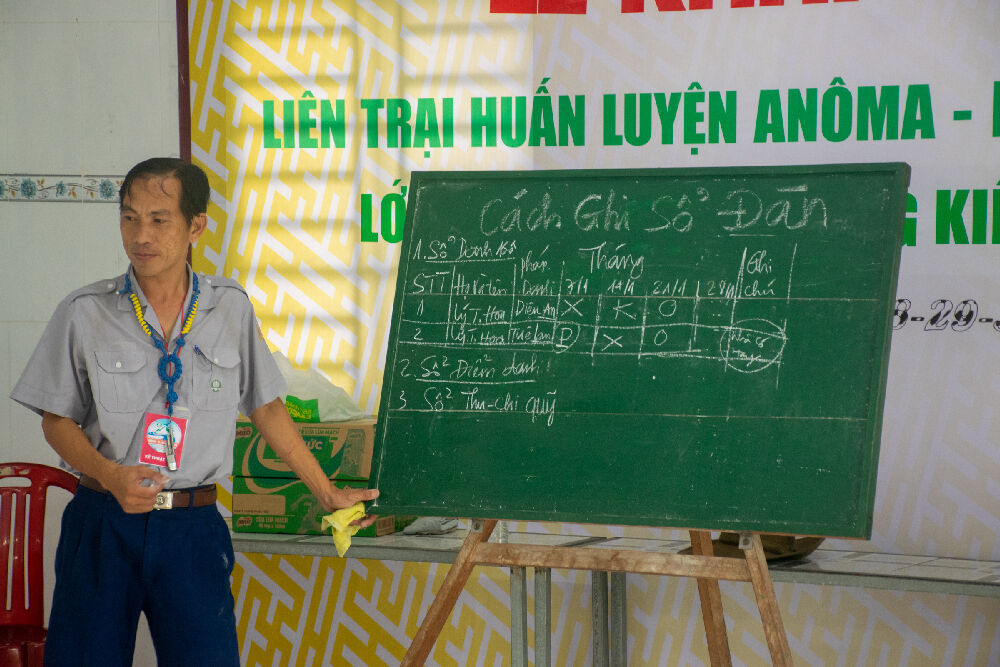 LIÊN TRẠI HUẤN LUYỆN ANÔMA -
LỚ
G KIẾ
Cách Ghi Sổ Đàn
1. Sổ Danh Bộ
STT Họ và tên pháp Danh Tháng 7/1 14/1 21/1 28/1 Ghi chú
1 Lý T. Hoa Diệu An X X O
2 Lý T. Hoa Tuệ Lan P X O
2. Sổ Điểm danh:
3 Sổ Thu-chi quỹ
-29-
SỮA LÚA MẠCH
MILO